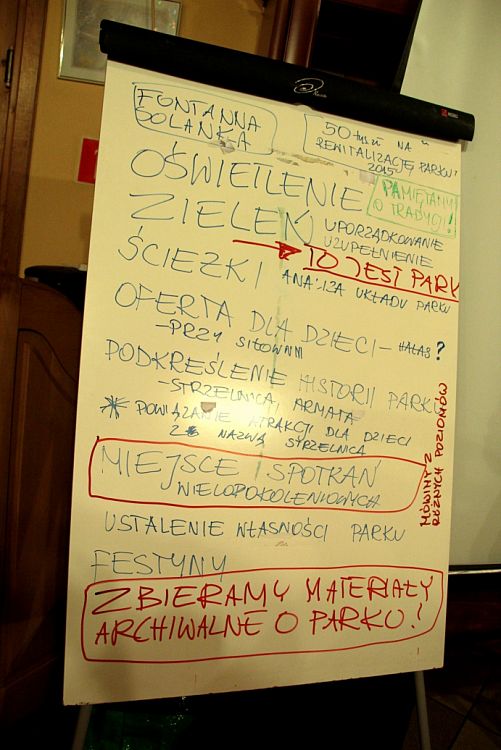 FONTANNA
SOLANKA
50 tyś NA
REWITALIZACJĘ PARKU"
2015
OŚWIETLENIE
PAMIĘTAMY
O TRADYCJI!
ZIELEŃ
UPORZĄDKOWANIE
UZUPEŁNIENIE
TO JEST PARK
ŚCIEŻKI
ANALIZA UKŁADU PARKU
OFERTA DLA DZIECI - HAŁAS?
- PRZY SIŁOWNI
PODKREŚLENIE HISTORII PARKU
- STRZELNICA, ARMATA
* POWIĄZANIE ATRAKCJI DLA DZIECI
Z NAZWĄ STRZELNICA
MIEJSCE SPOTKAŃ
WIELOPOKOLENIOWYCH
MÓWIMY Z
RÓŻNYCH POZIOMÓW
USTALENIE WŁASNOŚCI PARKU
FESTYNY
ZBIERAMY MATERIAŁY
ARCHIWALNE O PARKU!